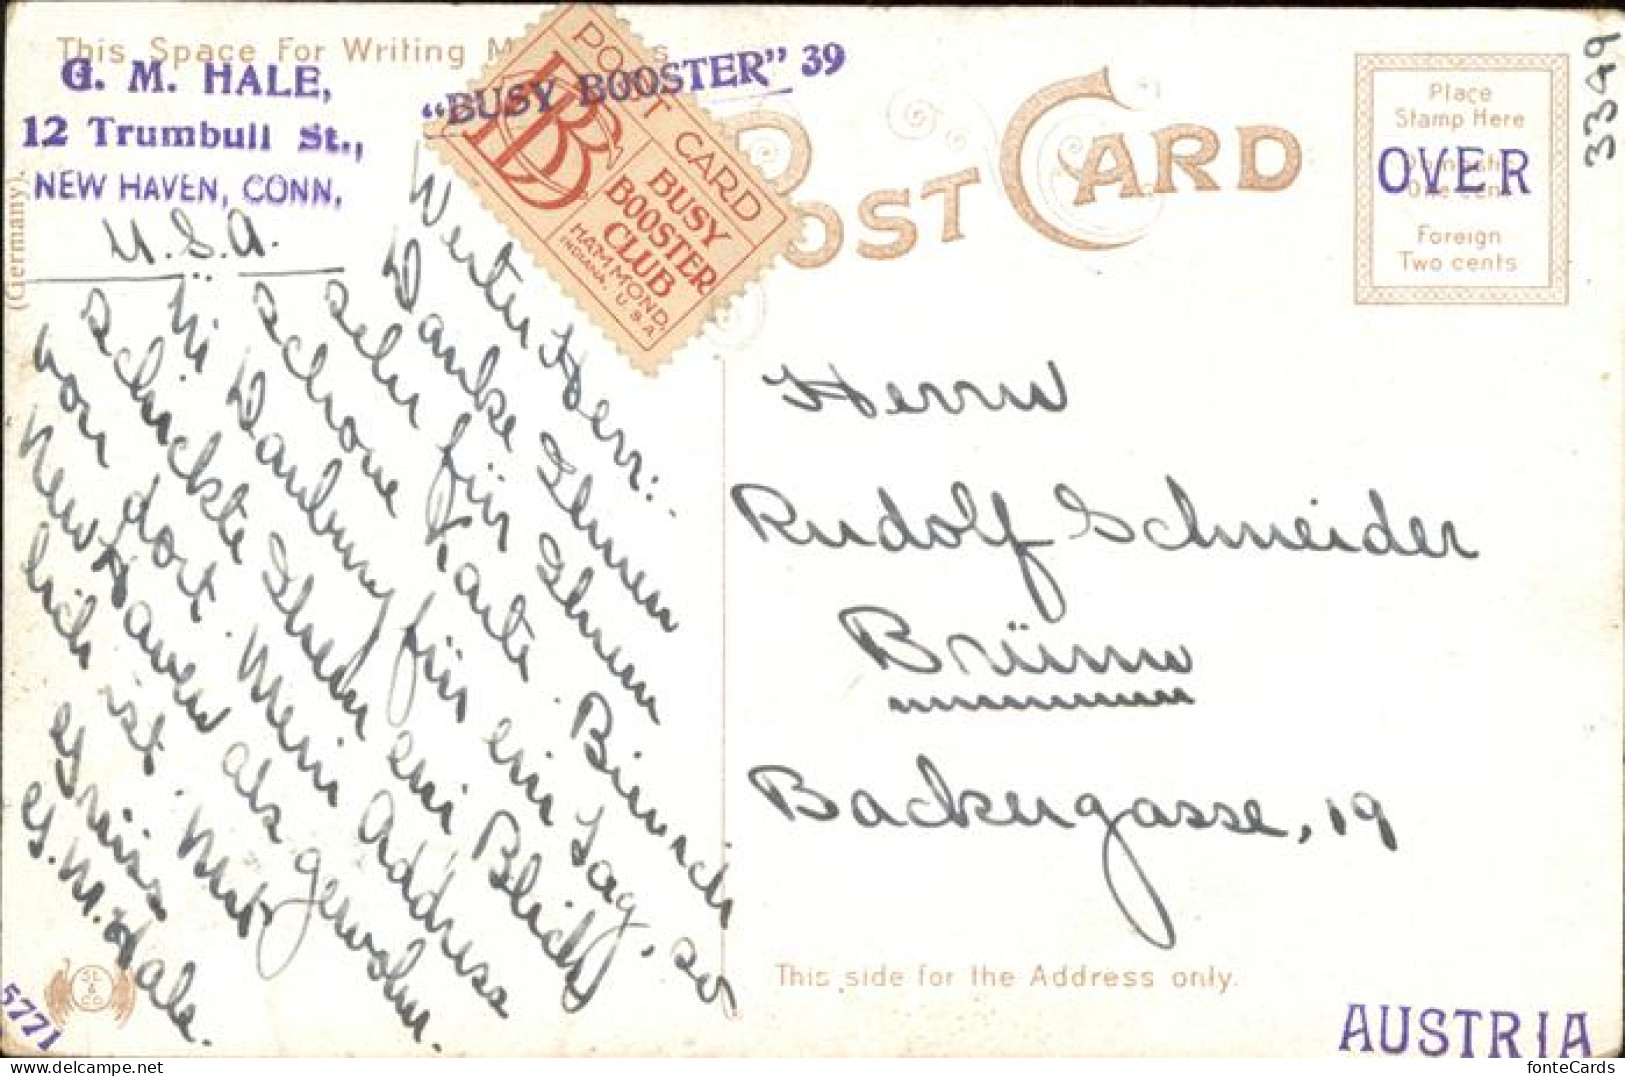 This Space For Writing M
G. M. HALE,
12 Trumbull St.,
NEW HAVEN, CONN.
U.S.A.
"BUSY BOOSTER" 39
POST CARD
BBC
BUSY
BOOSTER
CLUB
HAMMOND,
INDIANA, U.S.A.
(Germany).
Werter Herr:
Danke Ihnen
sehr für Ihnen
schone Karte. Bin auch
in Danbury für ein Tag, so
schickte Ihnen ein Blick
von dort. Mein Address
New Haven als gewohn-
lich ist. Mit
Grüss
G. M. Hale.
SL
& CO
5771
POST CARD
Place
Stamp Here
One cent
Foreign
Two cents
OVER
3349
Herrn
Rudolf Schneider
Brünn
Backergasse, 19
This side for the Address only.
AUSTRIA
fonteCards